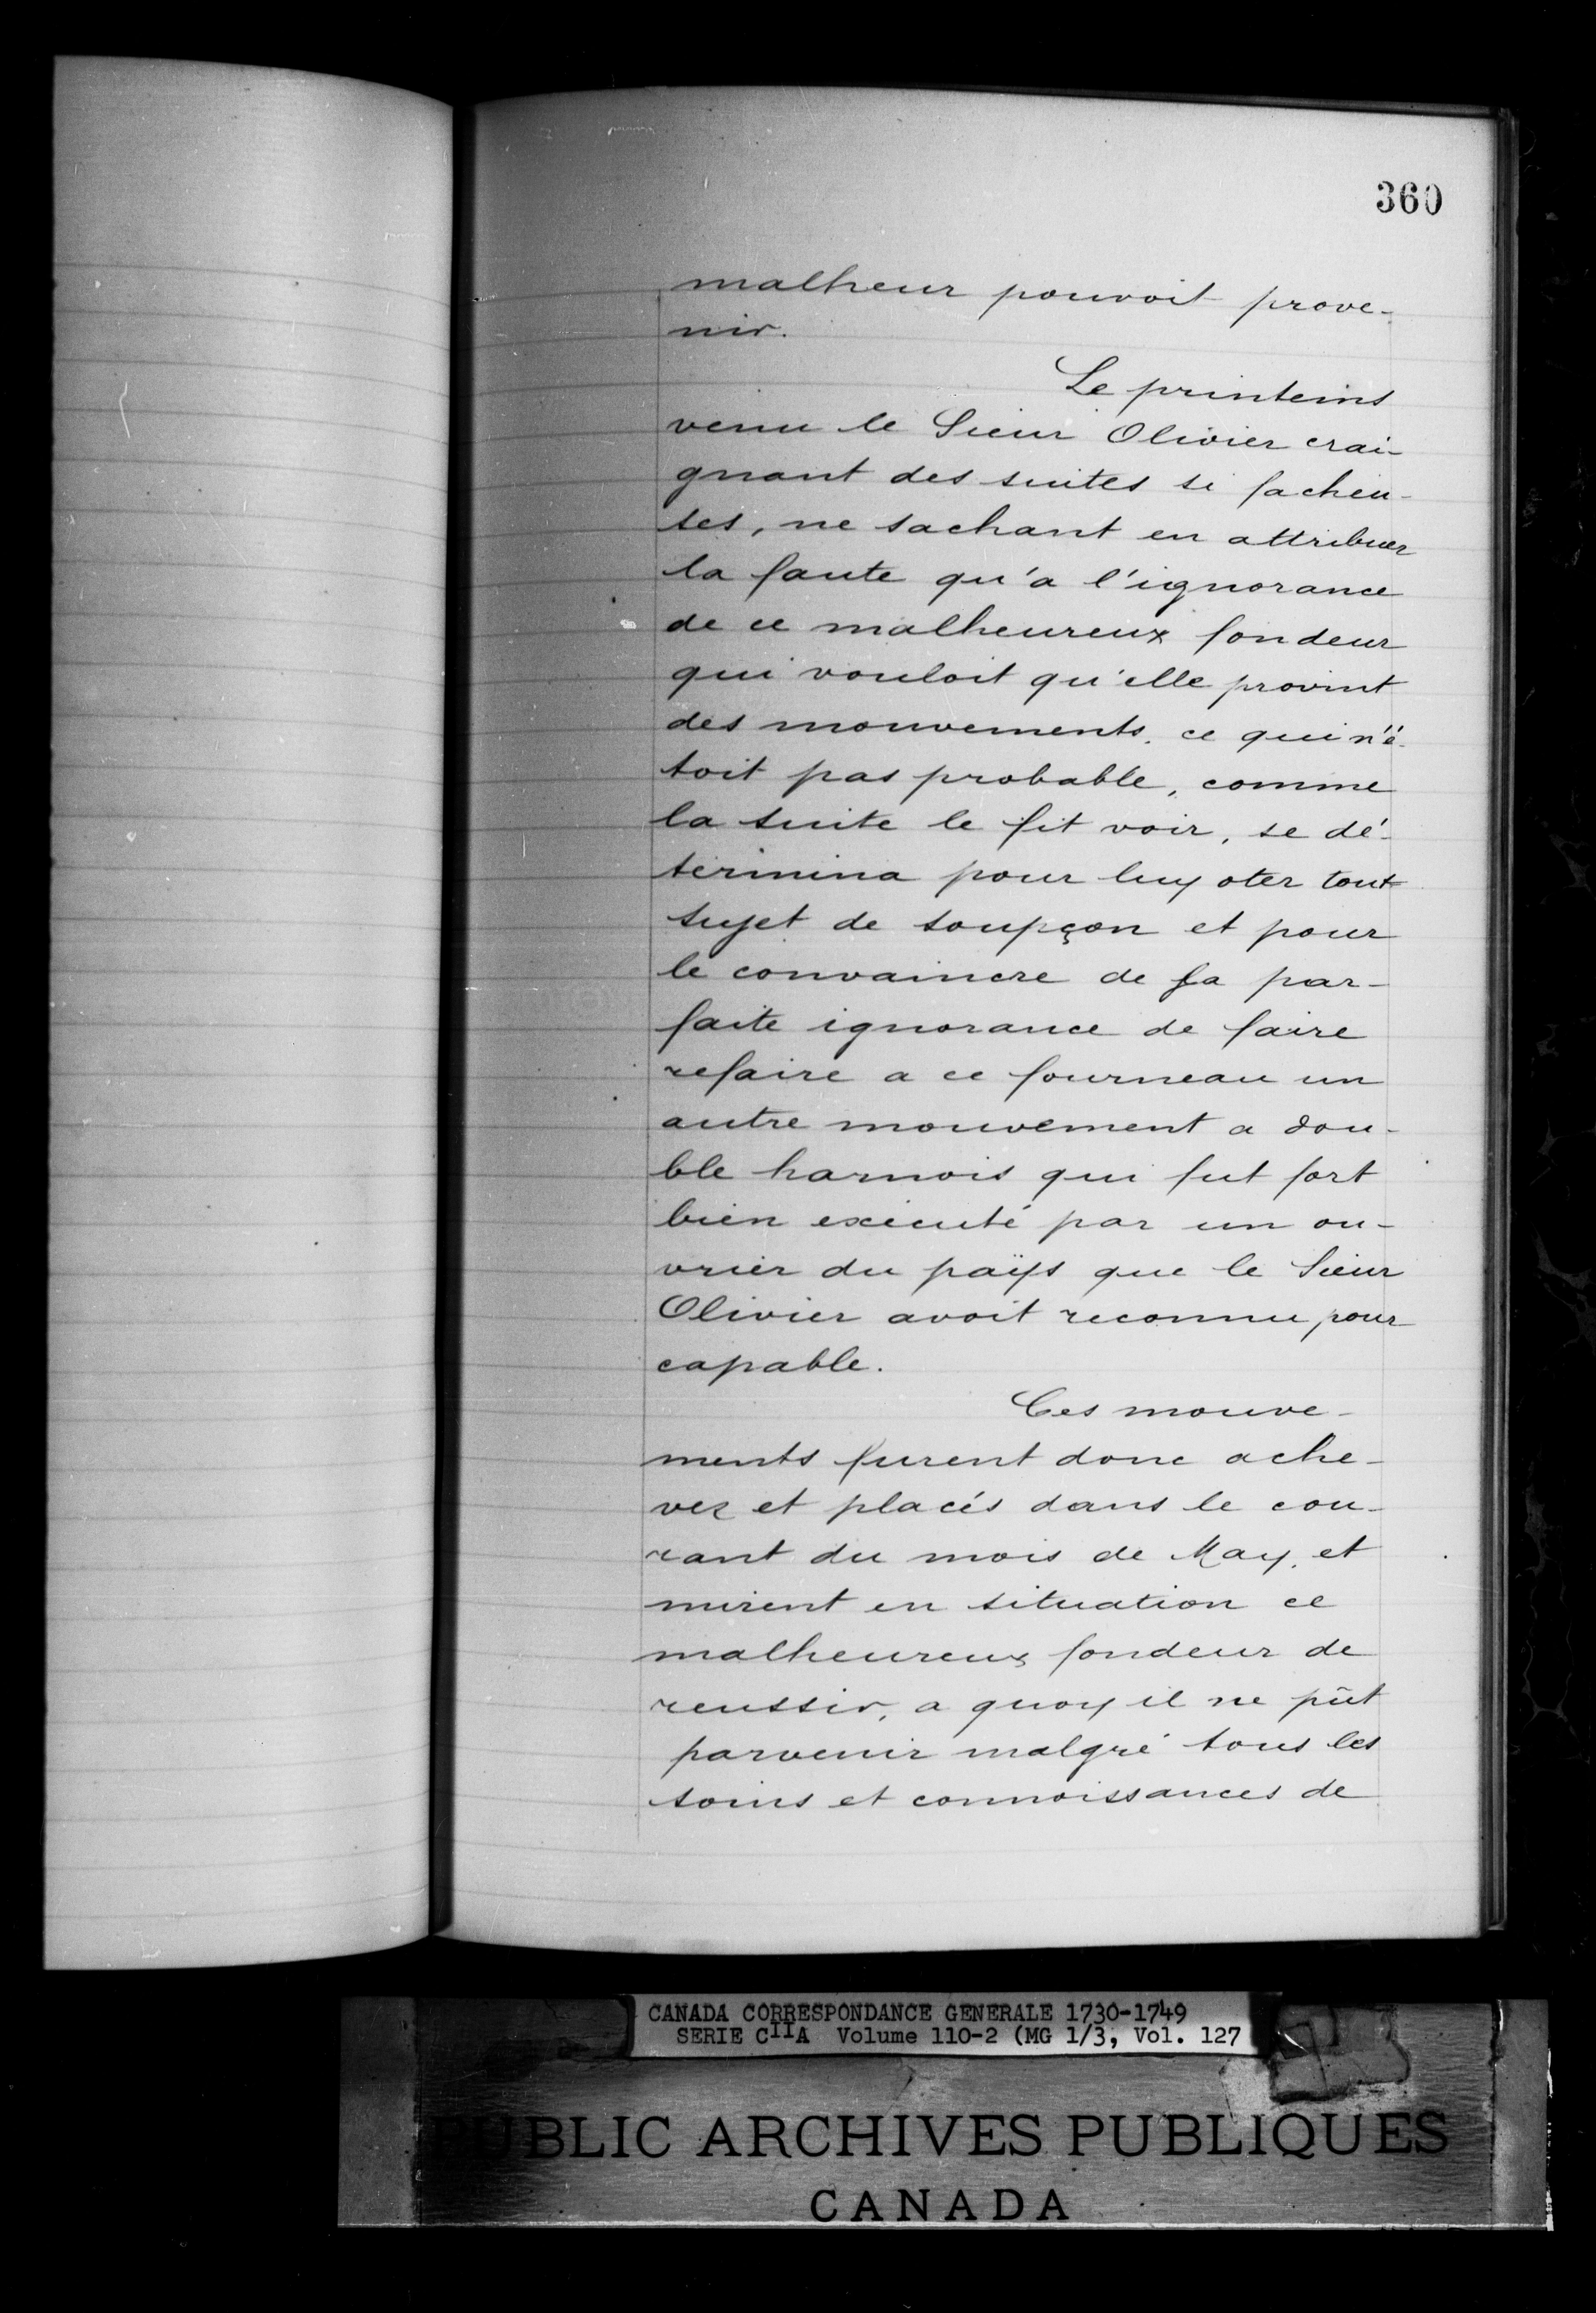 360
malheur pouvoit prove-
nir.
Le printems
venu le Sieur Olivier crai-
gnant des suites si facheu-
ses, ne sachant en attribuer
la faute qu'a l'ignorance
de ce malheureux fondeur
qui vouloit qu'elle provint
des mouvements, ce qui n'é-
toit pas probable, comme
la suite le fit voir, se dé-
termina pour luy oter tout
sujet de soupçon et pour
le convaincre de sa par-
faite ignorance de faire
refaire a ce fourneau un
autre mouvement a dou-
ble harnois qui fut fort
bien exécuté par un ou-
vrier du païs que le Sieur
Olivier avoit reconnu pour
capable.
Ces mouve-
ments furent donc ache-
vez et placés dans le cou-
rant du mois de May, et
mirent en situation ce
malheureux fondeur de
reussir, a quoy il ne pût
parvenir malgré tous les
soins et connoissances de
CANADA CORRESPONDANCE GENERALE 1730-1749
SERIE CIIA Volume 110-2 (MG 1/3, Vol. 127
PUBLIC ARCHIVES PUBLIQUES
CANADA